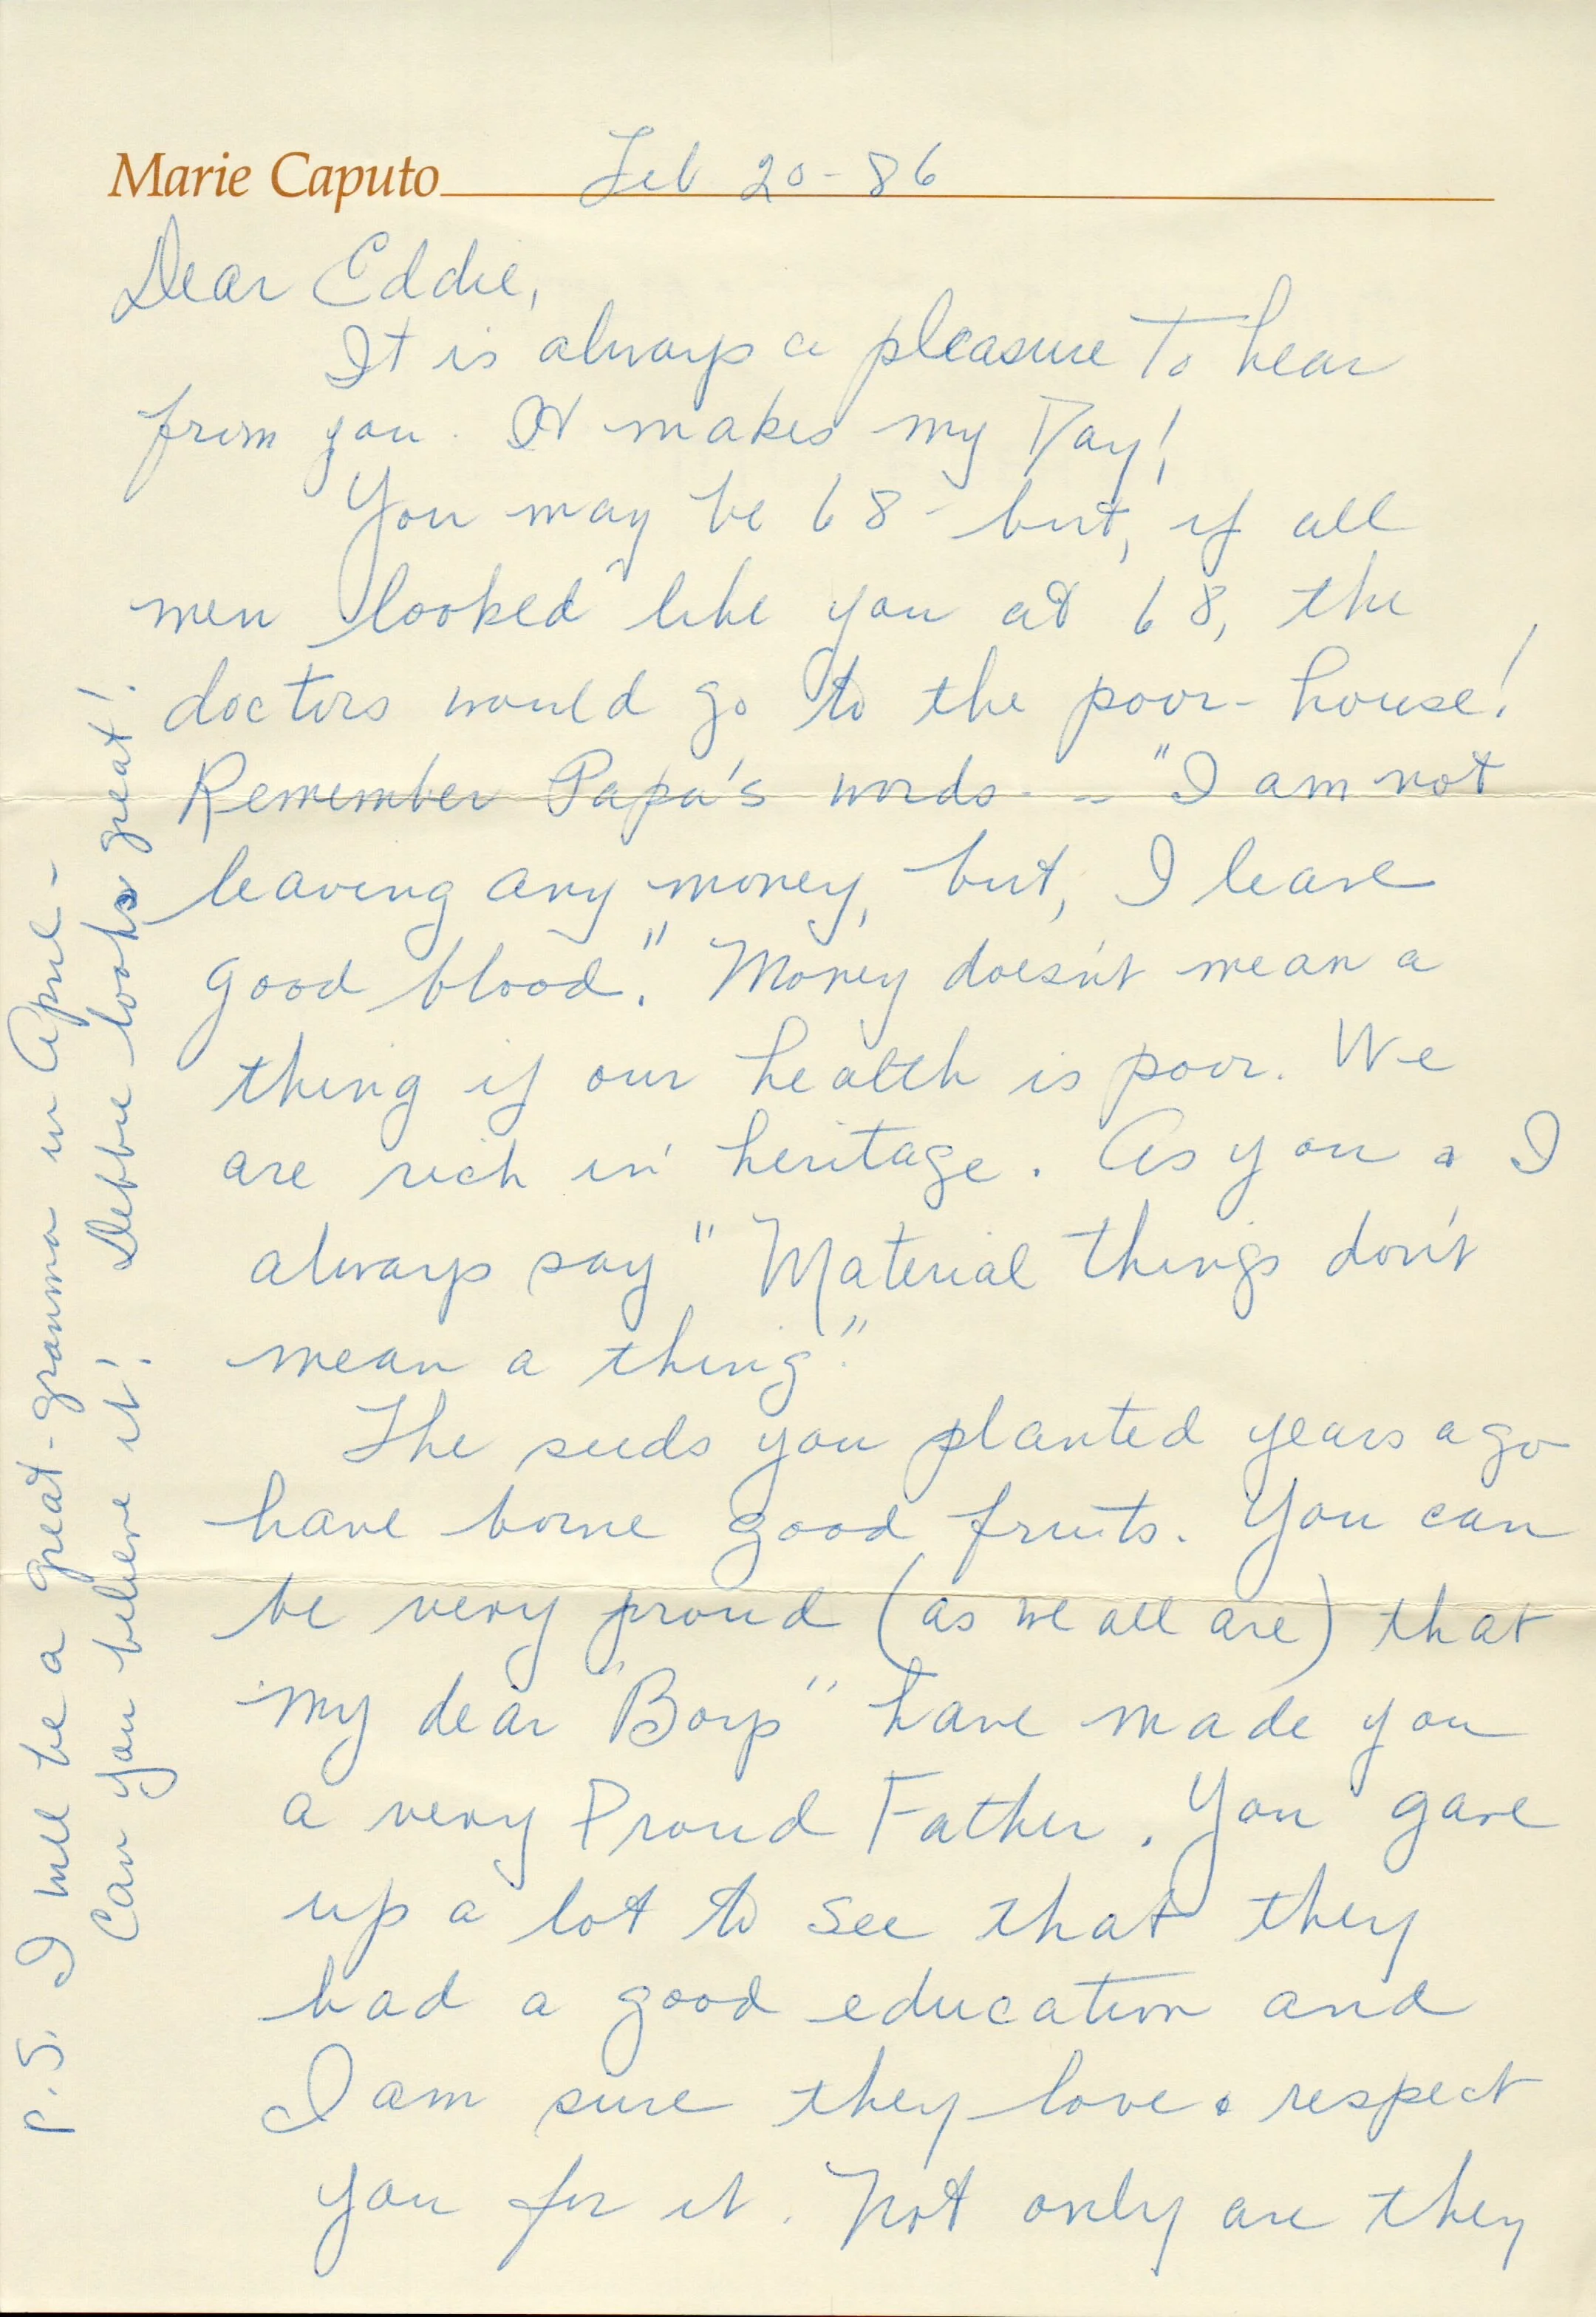 Marie Caputo Feb 20-86
Dear Eddie,
It is always a pleasure to hear
from you. It makes my Day!
You may be 68 - but, if all
men looked like you at 68, the
doctors would go to the poor-house!
Remember Papa's words -- "I am not
leaving any money, but, I leave
good blood." Money doesn't mean a
thing if our health is poor. We
are rich in heritage. As you & I
always say "Material things don't
mean a thing."
The seeds you planted years ago
have borne good fruits. You can
be very proud (as we all are) that
my dear "Boys" have made you
a very Proud Father. You gave
up a lot to see that they
had a good education and
I am sure they love & respect
you for it. Not only are they
P.S. I will be a great-gramma in April -
Can you believe it! Debbie looks great!